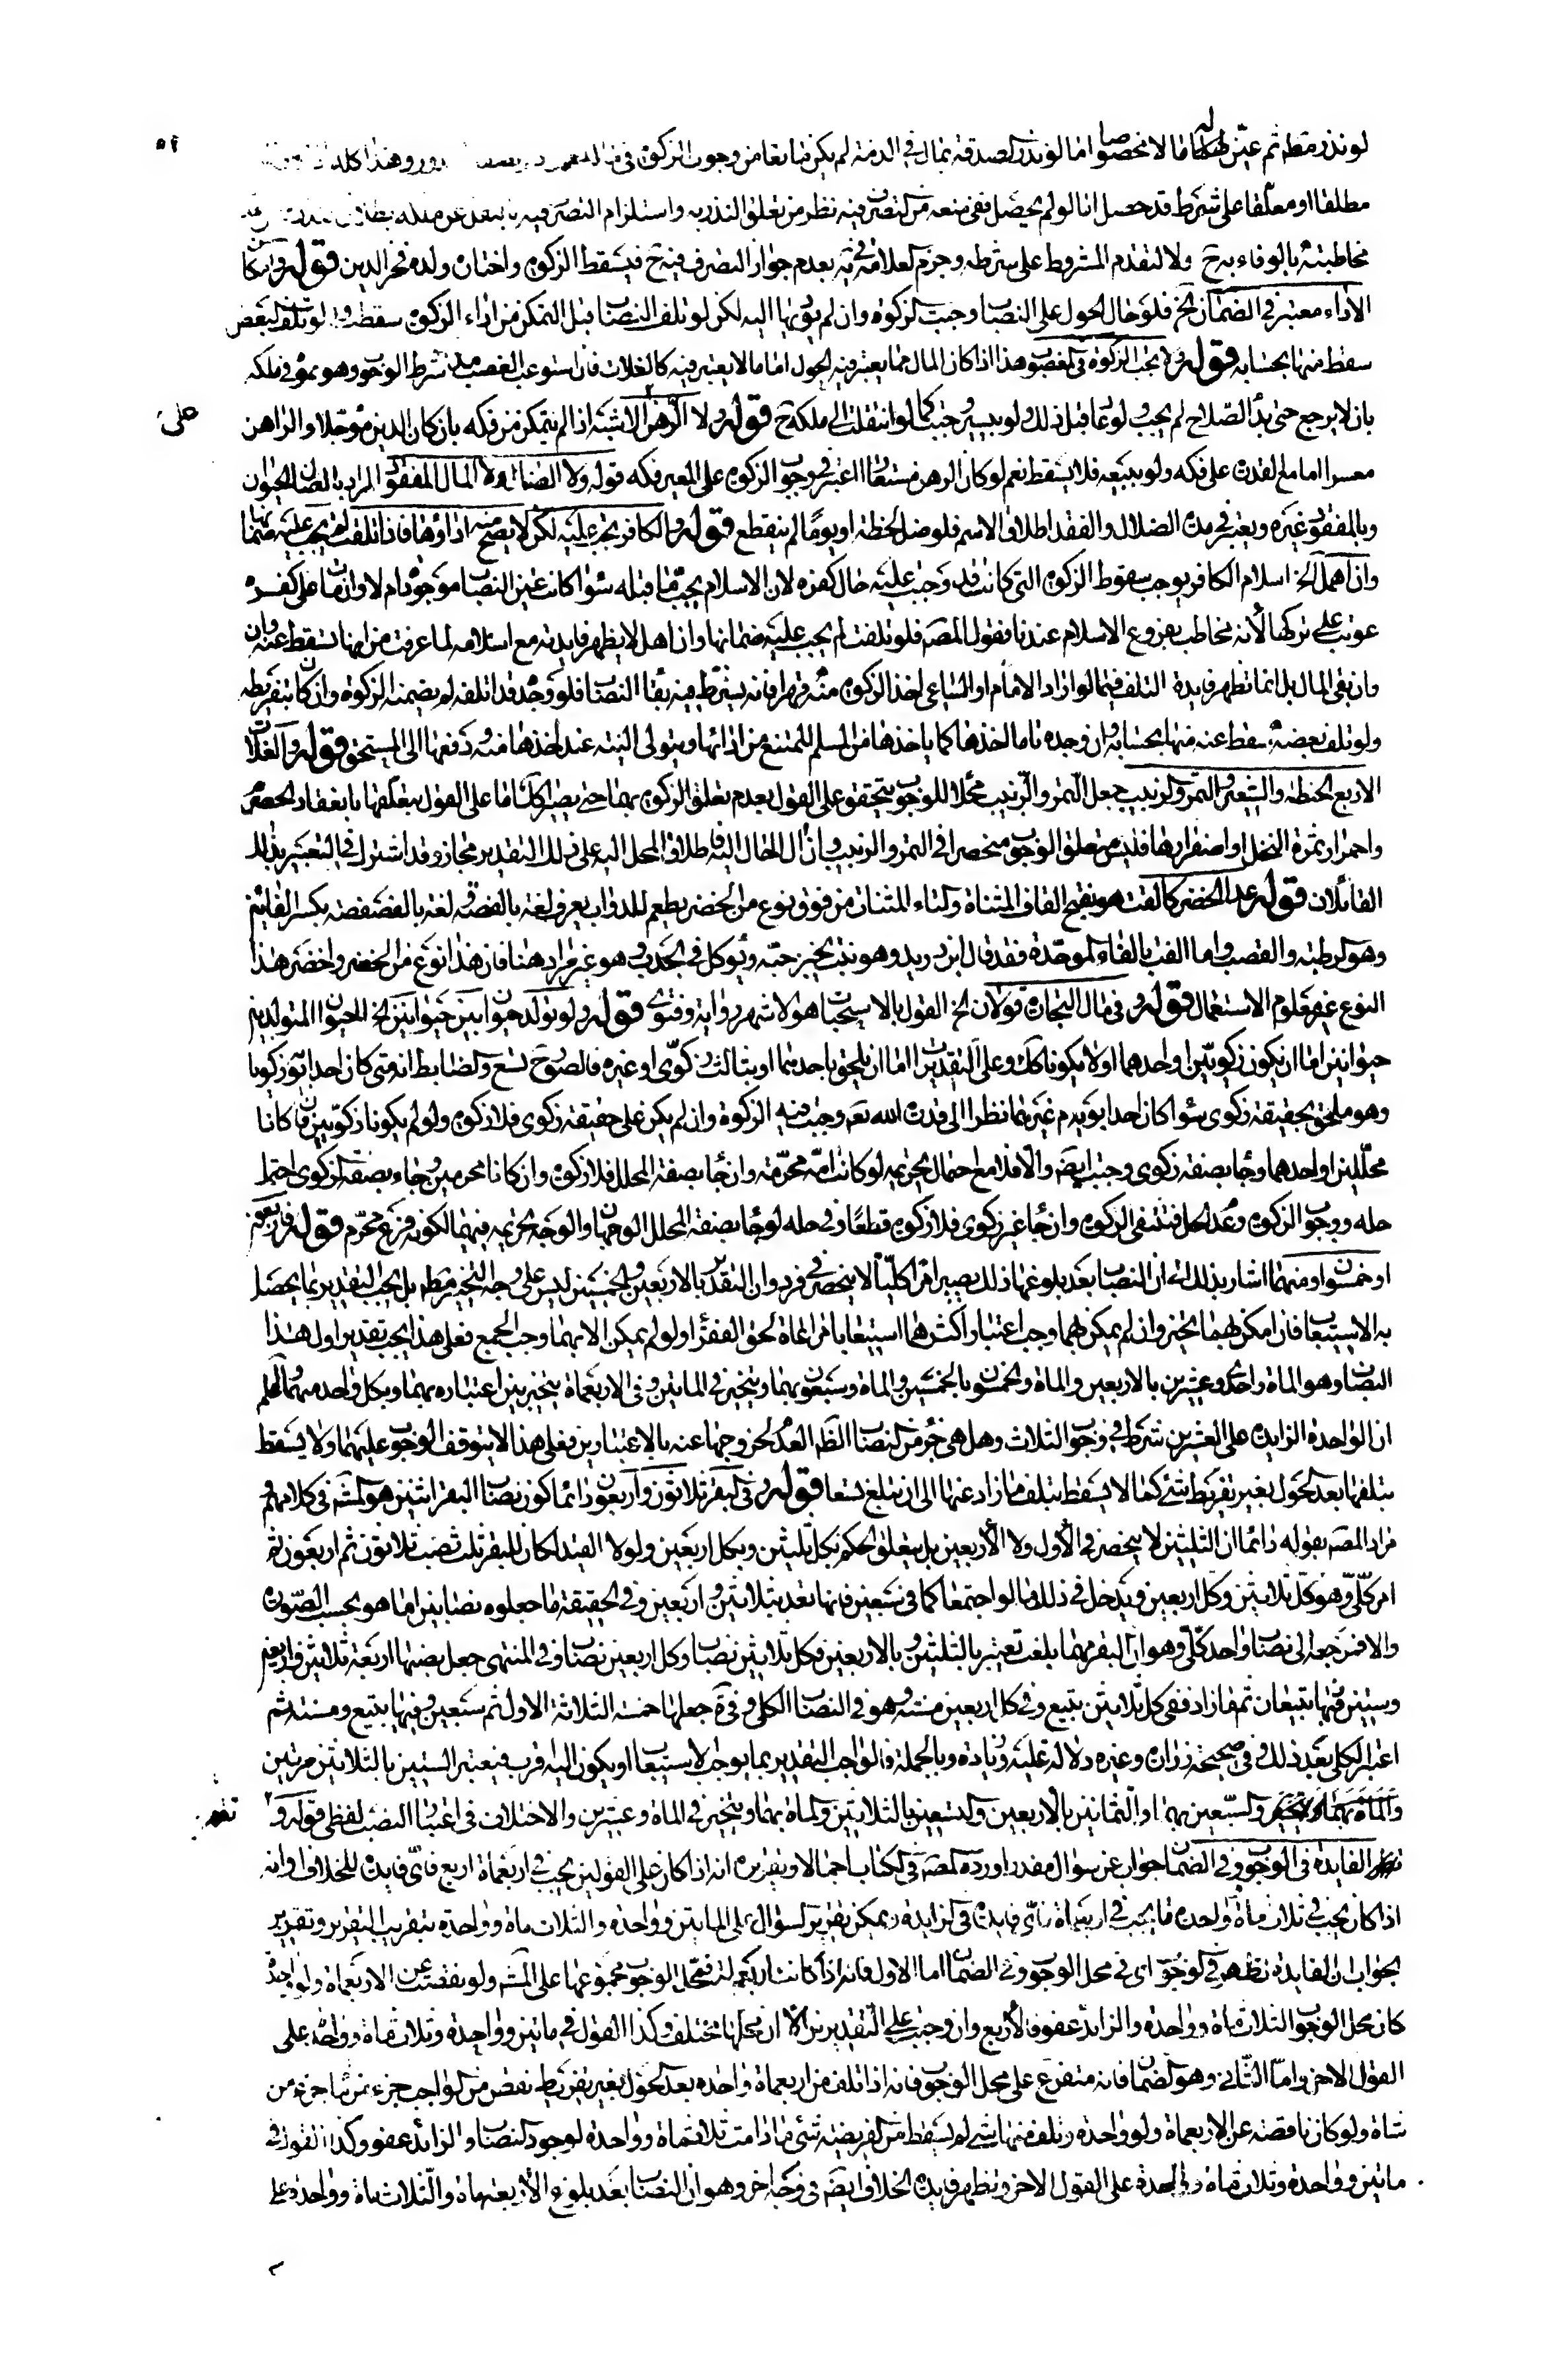 لو نذر مطلقا ثم عين لهما مالا مخصوصا اما لو نذر الصدقة بمال في الذمة لم يكن مانعا من وجوب الزكوة في وهذا كله
مطلقا او معلقا على شرط قد حصل اما لو لم يحصل ففي منعه من التصرف فيه نظر من تعلق النذر به واستلزام التصرف فيه
مخاطبته بالوفاء به ح ولا لتقدم المشروط على شرطه وجزم العلامة في يه بعدم جواز التصرف فيه ح فيسقط الزكوة واختاره ولده فخر الدين قوله وامكان
الاداء معتبر في الضمان الخ فلو حال الحول على النصاب وجبت الزكوة وان لم يؤدها اليه لكن لو تلف النصاب قبل التمكن من اداء الزكوة سقطت ولو تلف البعض
سقط منها بحسابه قوله ولا تجب الزكوة في المغصوب هذا اذا كان المال مما يعتبر فيه الحول اما ما لا يعتبر فيه كالغلات فان استوعب الغصب مدة شرط الوجوب وهو نموه في ملكه
بان لا يرجع حتى بدا الصلاح لم يجب ولو عاد قبل ذلك ولو بيسير وجبت كما لو انتقلت الى ملكه ح قوله ولا الرهن الاشبه اذا لم يتمكن من فكه بان كان الدين مؤجلا او الراهن
معسرا اما مع القدرة على فكه ولو ببيعه فلا يسقط نعم لو كان الرهن مستعارا اعتبر في وجوب الزكوة على المعير فكه قوله ولا الضال ولا المال المفقود المراد بالضال الحيوان
وبالمفقود غيره ويعتبر في مدة الضلال والفقد اطلاق الاسم فلو ضل لحظة او يوما لم ينقطع قوله والكافر تجب عليه لكن لا يصح منه اداؤها فاذا تلفت لا يجب عليه ضمانها
وان اهمل الخ اسلام الكافر يوجب سقوط الزكوة التي كانت قد وجبت عليه حال كفره لان الاسلام يجب ما قبله سواء كانت عين النصاب موجودة ام لا وان مات على كفره
عوقب على تركها لانه مخاطب بفروع الاسلام عندنا فقول المصه فلو تلفت لم يجب عليه ضمانها وان اهمل لا يظهر فايدته مع اسلامه لما عرفت من انها تسقط عنه وان
وان بقي المال بل انما تظهر فايدة التلف فيما لو اراد الامام او الساعي اخذ الزكوة منه قهرا فانه يشترط فيه بقاء النصاب فلو وجده قد اتلفه لم يضمنه الزكوة وان كان بتفريطه
ولو تلف بعضه سقط عنه منها بحسابه وان وجده تاما اخذها كما ياخذها من المسلم الممتنع من ادائها ويتولى النية عند اخذها منه ودفعها الى المستحق قوله والغلات
الاربع الحنطة والشعير والتمر والزبيب جعل التمر والزبيب محلا للوجوب يتحقق على القول بعدم تعلق الزكوة بهما حتى يصير كذلك اما على القول بتعلقها بانعقاد الحصرم
واحمرار ثمرة النخل او اصفرارها فليس متعلق الوجوب منحصرا في التمر والزبيب وان آل الحال اليه فاطلاق المحل اليه على ذلك التقدير مجاز وقد اشترك في التعبير بذلك
القائلان قوله عدا الخضر كالقت هو بفتح القاف المثناة والتاء المثناة من فوق نوع من الخضر يطعم للدواب يعرف لغة بالفصة وفي لغة بالفصفصة بكسر الفائين
وهو الرطبة والقضب واما الفث بالفاء الموحدة فقد قال ابن دريد وهو نبت يخبز حبه ويؤكل في الجدب وهو غير مراد هنا فان هذا نوع من الخضر وخضر هذا
النوع غير معلوم الاستعمال قوله وفي مال التجارة قولان الخ القول بالاستحباب هو الاشهر رواية وفتوى قوله ولو تولد حيوان بين حيوانين الخ الحيوان المتولد بين
حيوانين اما ان يكون زكويين او احدهما او لا يكونا كك وعلى التقديرات اما ان يلحق باحدهما او بثالث زكوي او غيره فالصور ح تسع والضابط انه متى كان احد ابويه زكويا
وهو ملحق بحقيقة زكوي سواء كان احد ابويه ام غيرهما نظرا الى قدرة الله تعه وجبت فيه الزكوة وان لم يكن على حقيقة زكوي فلا زكوة ولو لم يكونا زكويين فان كانا
محللين او احدهما وجاء بصفة زكوي وجبت ايضه والا فلا مع احتمال تحريمه لو كانت امه محرمة وان جاء بصفة المحلل فلا زكوة وان كانا محرمين وجاء بصفة الزكوي احتمل
حله ووجوب الزكوة وعدم الحل فتنتفي الزكوة وان جاء غير زكوي فلا زكوة قطعا وفي حله لو جاء بصفة المحلل الوجهان والوجه تحريمه فيهما لكونه فرع محرم قوله فاربعون
او خمسون او منهما اشار بذلك الى ان النصاب بعد بلوغها ذلك يصير امرا كليا لا ينحصر في فرد وان التقدير بالاربعين والخمسين ليس على وجه التخيير مطلقا بل يجب التقدير بما يحصل
به الاستيعاب فان امكن بهما تخير وان لم يمكن بهما وجب اعتبار اكثرهما استيعابا مراعاة لحق الفقراء ولو لم يمكن الا بهما وجب الجمع فعلى هذا يجب تقدير اول هذا
النصاب وهو الماة واحدى وعشرين بالاربعين والماة والخمسون بالخمسين والماة وسبعون بهما ويتخير في المايتين وفي الاربعماة يتخير بين اعتباره بهما وبكل واحد منهما واعلم
ان الواحدة الزايدة على العشرين شرط في وجوب الثلاث وهل هي جزء من النصاب الظه العدم لخروجها عنه بالاعتبارين فعلى هذا لا يتوقف الوجوب عليها ولا يسقط
بتلفها بعد الحول بغير تفريط شئ كما لا يسقط بتلف ما زاد عنها الى ان تبلغ تسعا قوله وفي البقر ثلاثون واربعون دائما كون نصاب البقر اثنين هو المشه في كلامهم و
مراد المصه بقوله دائما ان الثلثين لا ينحصر في الاول ولا الاربعين بل يتعلق الحكم بكل ثلثين وبكل اربعين ولولا القيد لكان للبقر ثلث نصب ثلاثون ثم اربعون ثم
امر كلي وهو كل ثلاثين وكل اربعين ويدخل في ذلك ما لو اجتمعا كما في سبعين فانها تعد بثلاثين واربعين وفي الحقيقة ما جعلوه نصابين انما هو بحسب الصورة
والا فمرجعه الى نصاب واحد كلي وهو ان البقر مهما بلغت تعتبر بالثلثين وبالاربعين فكل ثلاثين نصاب وكل اربعين نصاب وفي المنتهى جعل نصبها اربعة ثلاثين واربعين
وستين ففيها تبيعان ثم ما زاد ففي كل ثلاثين تبيع وفي كل اربعين مسنة وهو في النصاب الكلي وفي ة جعلها خمسة الثلاثة الاول ثم سبعين وفيها تبيع ومسنة ثم
اعتبر الكلي بعد ذلك وفي صحيحة زرارة وغيره دلالة عليه وزيادة وبالجملة فالواجب التقدير بما يوجب الاستيعاب او يكون اليه اقرب فيعتبر الستين بالثلاثين مرتين
والسبعين بهما والثمانين بالاربعين والتسعين بالثلاثين والماة بهما ويتخير في الماة وعشرين والاختلاف في اعتبار النصب لفظي قوله و
تظهر الفايدة في الوجوب وفي الضمان جواب عن سؤال مقدر اورده المصه في الكتاب اجمالا وتقريره انه اذا كان على القولين يجب في اربعماة اربع فاي فايدة للخلاف او انه
اذا كان يجب في ثلاث ماة وواحدة ما يجب في اربعماة فاي فايدة في الزايدة ويمكن تقرير السؤال على المايتين وواحدة والثلاث ماة وواحدة بتقريب التقرير وتقرير
الجواب ان الفايدة تظهر في الوجوب اي في محل الوجوب وفي الضمان اما الاول فانه اذا كانت اربعماة فمحل الوجوب مجموعها على المشه ولو نقصت عن الاربعماة ولو واحدة
كان محل الوجوب الثلاث ماة وواحدة والزائد عفو فالاربع وان وجبت على التقديرين الا ان محلها مختلف وكذا القول في مايتين وواحدة وثلاث ماة وواحدة على
القول الاخر واما الثاني وهو الضمان فانه متفرع على محل الوجوب فانه اذا تلف من اربعماة واحدة بعد الحول بغير تفريط نقص من الواجب جزء من ماة جزء من
شاة ولو كان ناقصة عن الاربعماة ولو واحدة وتلف منها شئ لم يسقط من الفريضة شئ ما دامت ثلاثماة وواحدة لوجود النصاب والزائد عفو وكذا القول في
مائتين وواحدة وثلاث ماة وواحدة على القول الاخر وتظهر فايدة الخلاف ايضه في وجه اخر وهو ان النصاب بعد بلوغ الاربعماة والثلاث ماة وواحدة على